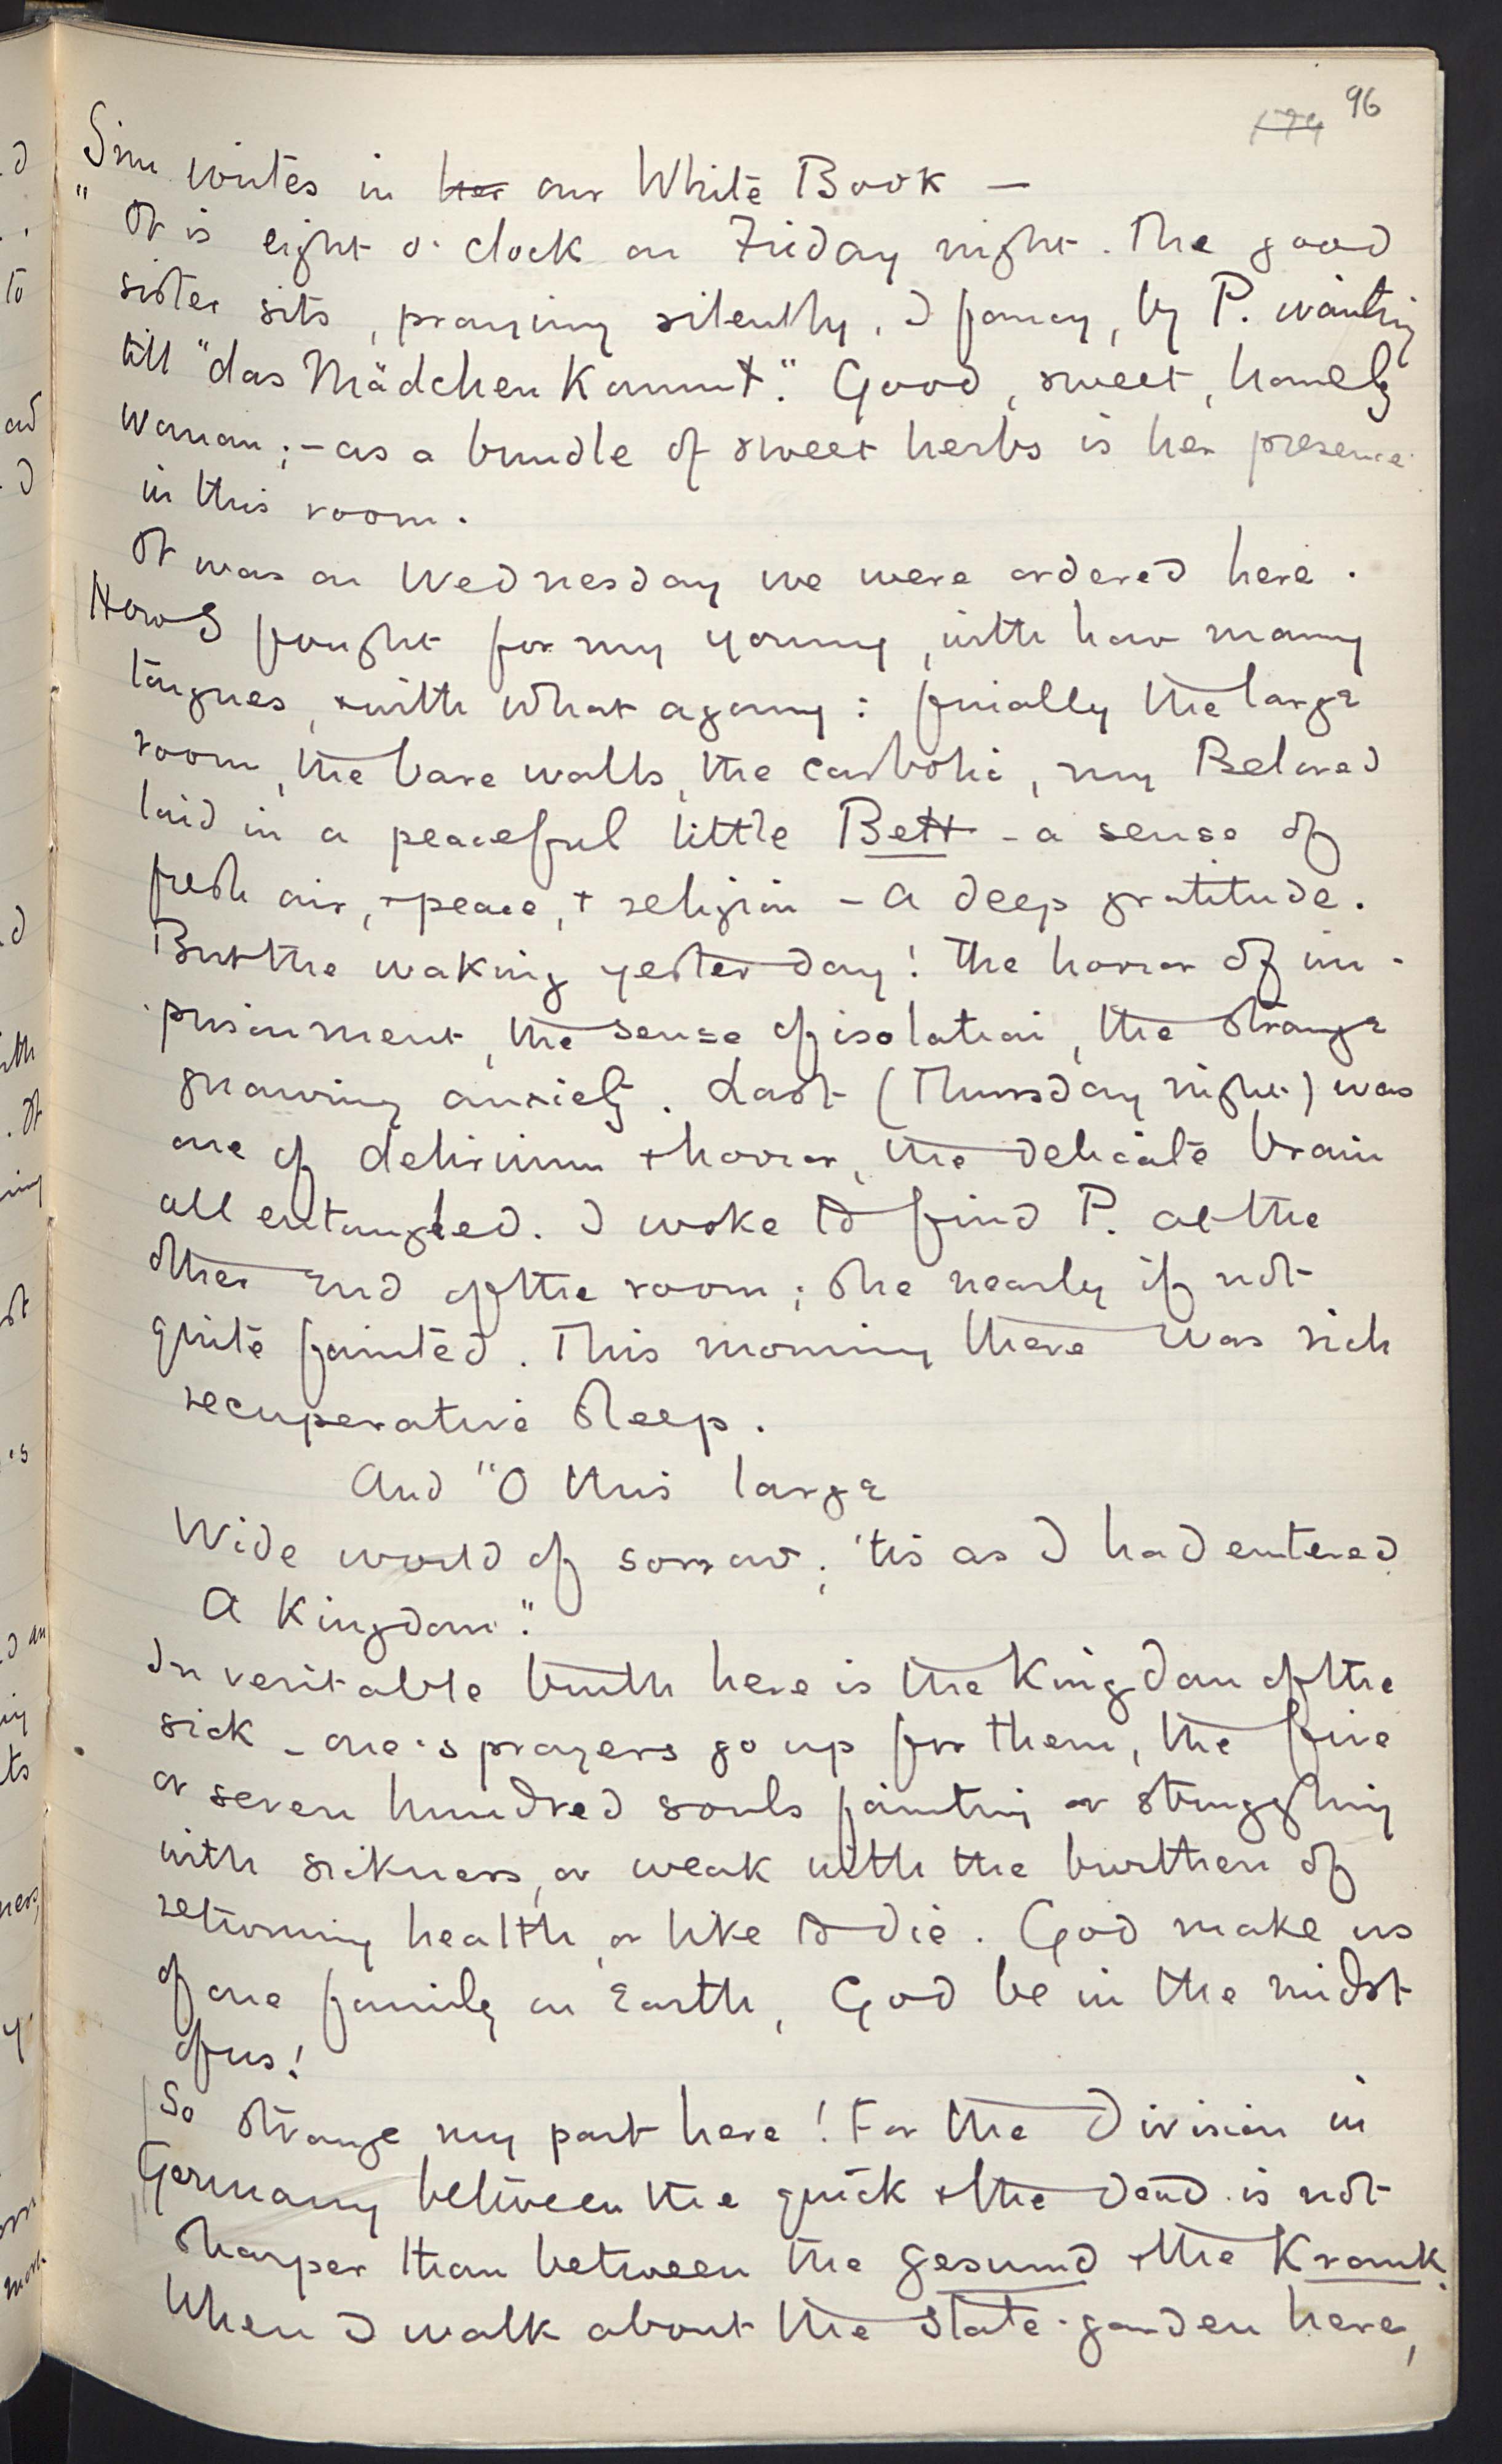 96
Sim writes in her our White Book —
"It is eight o'clock on Friday night. The good
sister sits, praying silently, I fancy, by P. waiting
till "das Mädchen kommt." Good, sweet, homely
woman; – as a bundle of sweet herbs is her presence
in this room.
It was on Wednesday we were ordered here.
How I fought for my young, with how many
tongues, & with what agony: finally the large
room, the bare walls, the carbolic, my Beloved
laid in a peaceful little Bett – a sense of
fresh air, & peace, & religion – a deep gratitude.
But the waking yesterday! The horror of im-
prisonment, the sense of isolation, the strange
gnawing anxiety. Last (Thursday night) was
one of delirium & horror, the delicate brain
all entangled. I woke to find P. at the
other end of the room; she nearly if not
quite fainted. This morning there was rich
recuperative sleep.
And "O this large
Wide world of sorrow; 'tis as I had entered
A Kingdom".
In veritable truth here is the Kingdom of the
sick – one's prayers go up for them, the five
or seven hundred souls fainting or struggling
with sickness, or weak with the burthen of
returning health, or like to die. God make us
of one family on Earth, God be in the midst
of us!
So strange my part here! For the division in
Germany between the quick & the dead is not
sharper than between the gesund & the Krank.
When I walk about the State-garden here,